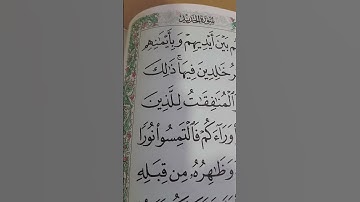 سورة الحديد
بَيْنَ أَيْدِيهِمْ وَبِأَيْمَٰنِهِم
خَٰلِدِينَ فِيهَا ۚ ذَٰلِكَ
ٱلْمُنَٰفِقَٰتُ لِلَّذِينَ
وَرَآءَكُمْ فَٱلْتَمِسُوا۟ نُورًا
وَظَٰهِرُهُۥ مِن قِبَلِهِ